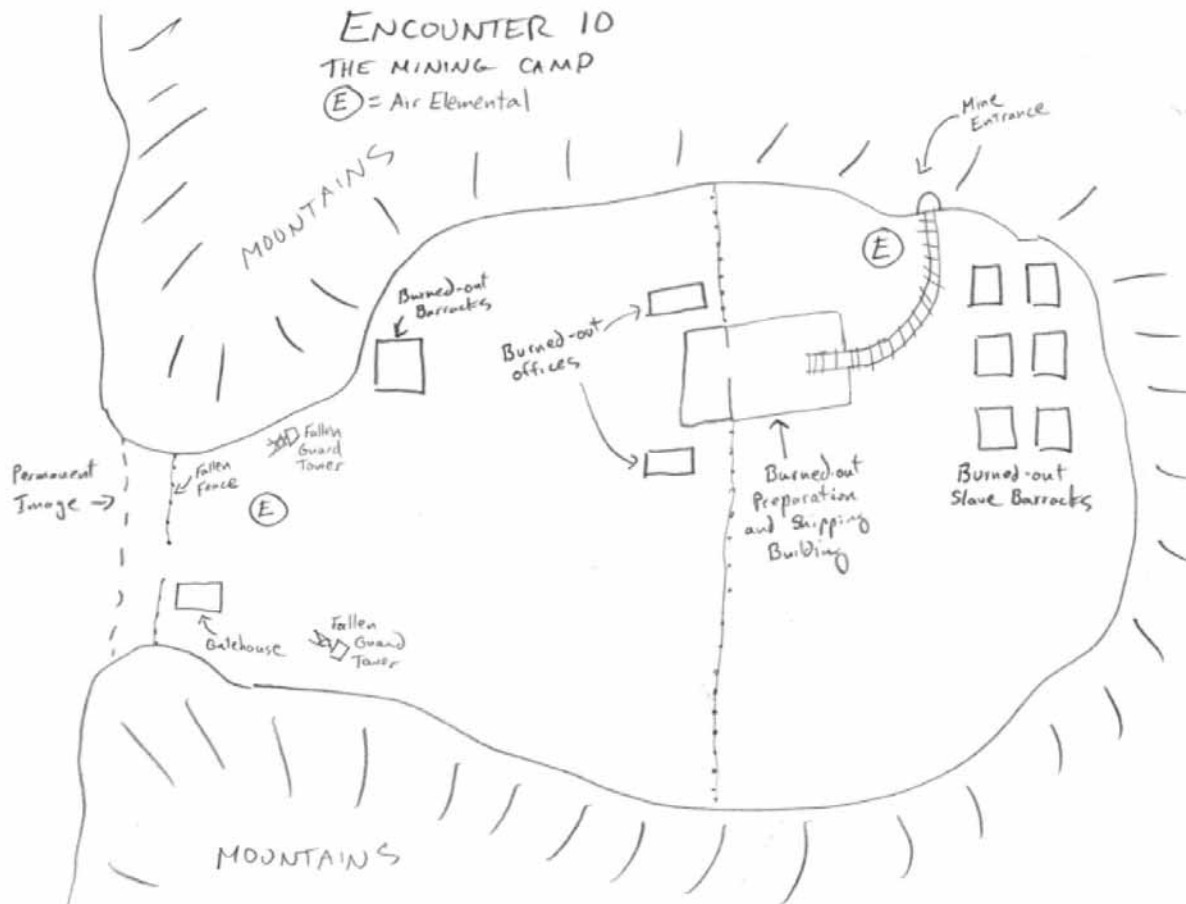 ENCOUNTER 10
THE MINING CAMP
E = Air Elemental
Mine
Entrance
MOUNTAINS
E
Burned-out
Barracks
Burned-out
offices
Fallen
Guard
Tower
Permanent
Image
Fallen
Fence
E
Burned-out
Preparation
and Shipping
Building
Burned-out
Slave Barracks
Gatehouse
Fallen
Guard
Tower
MOUNTAINS